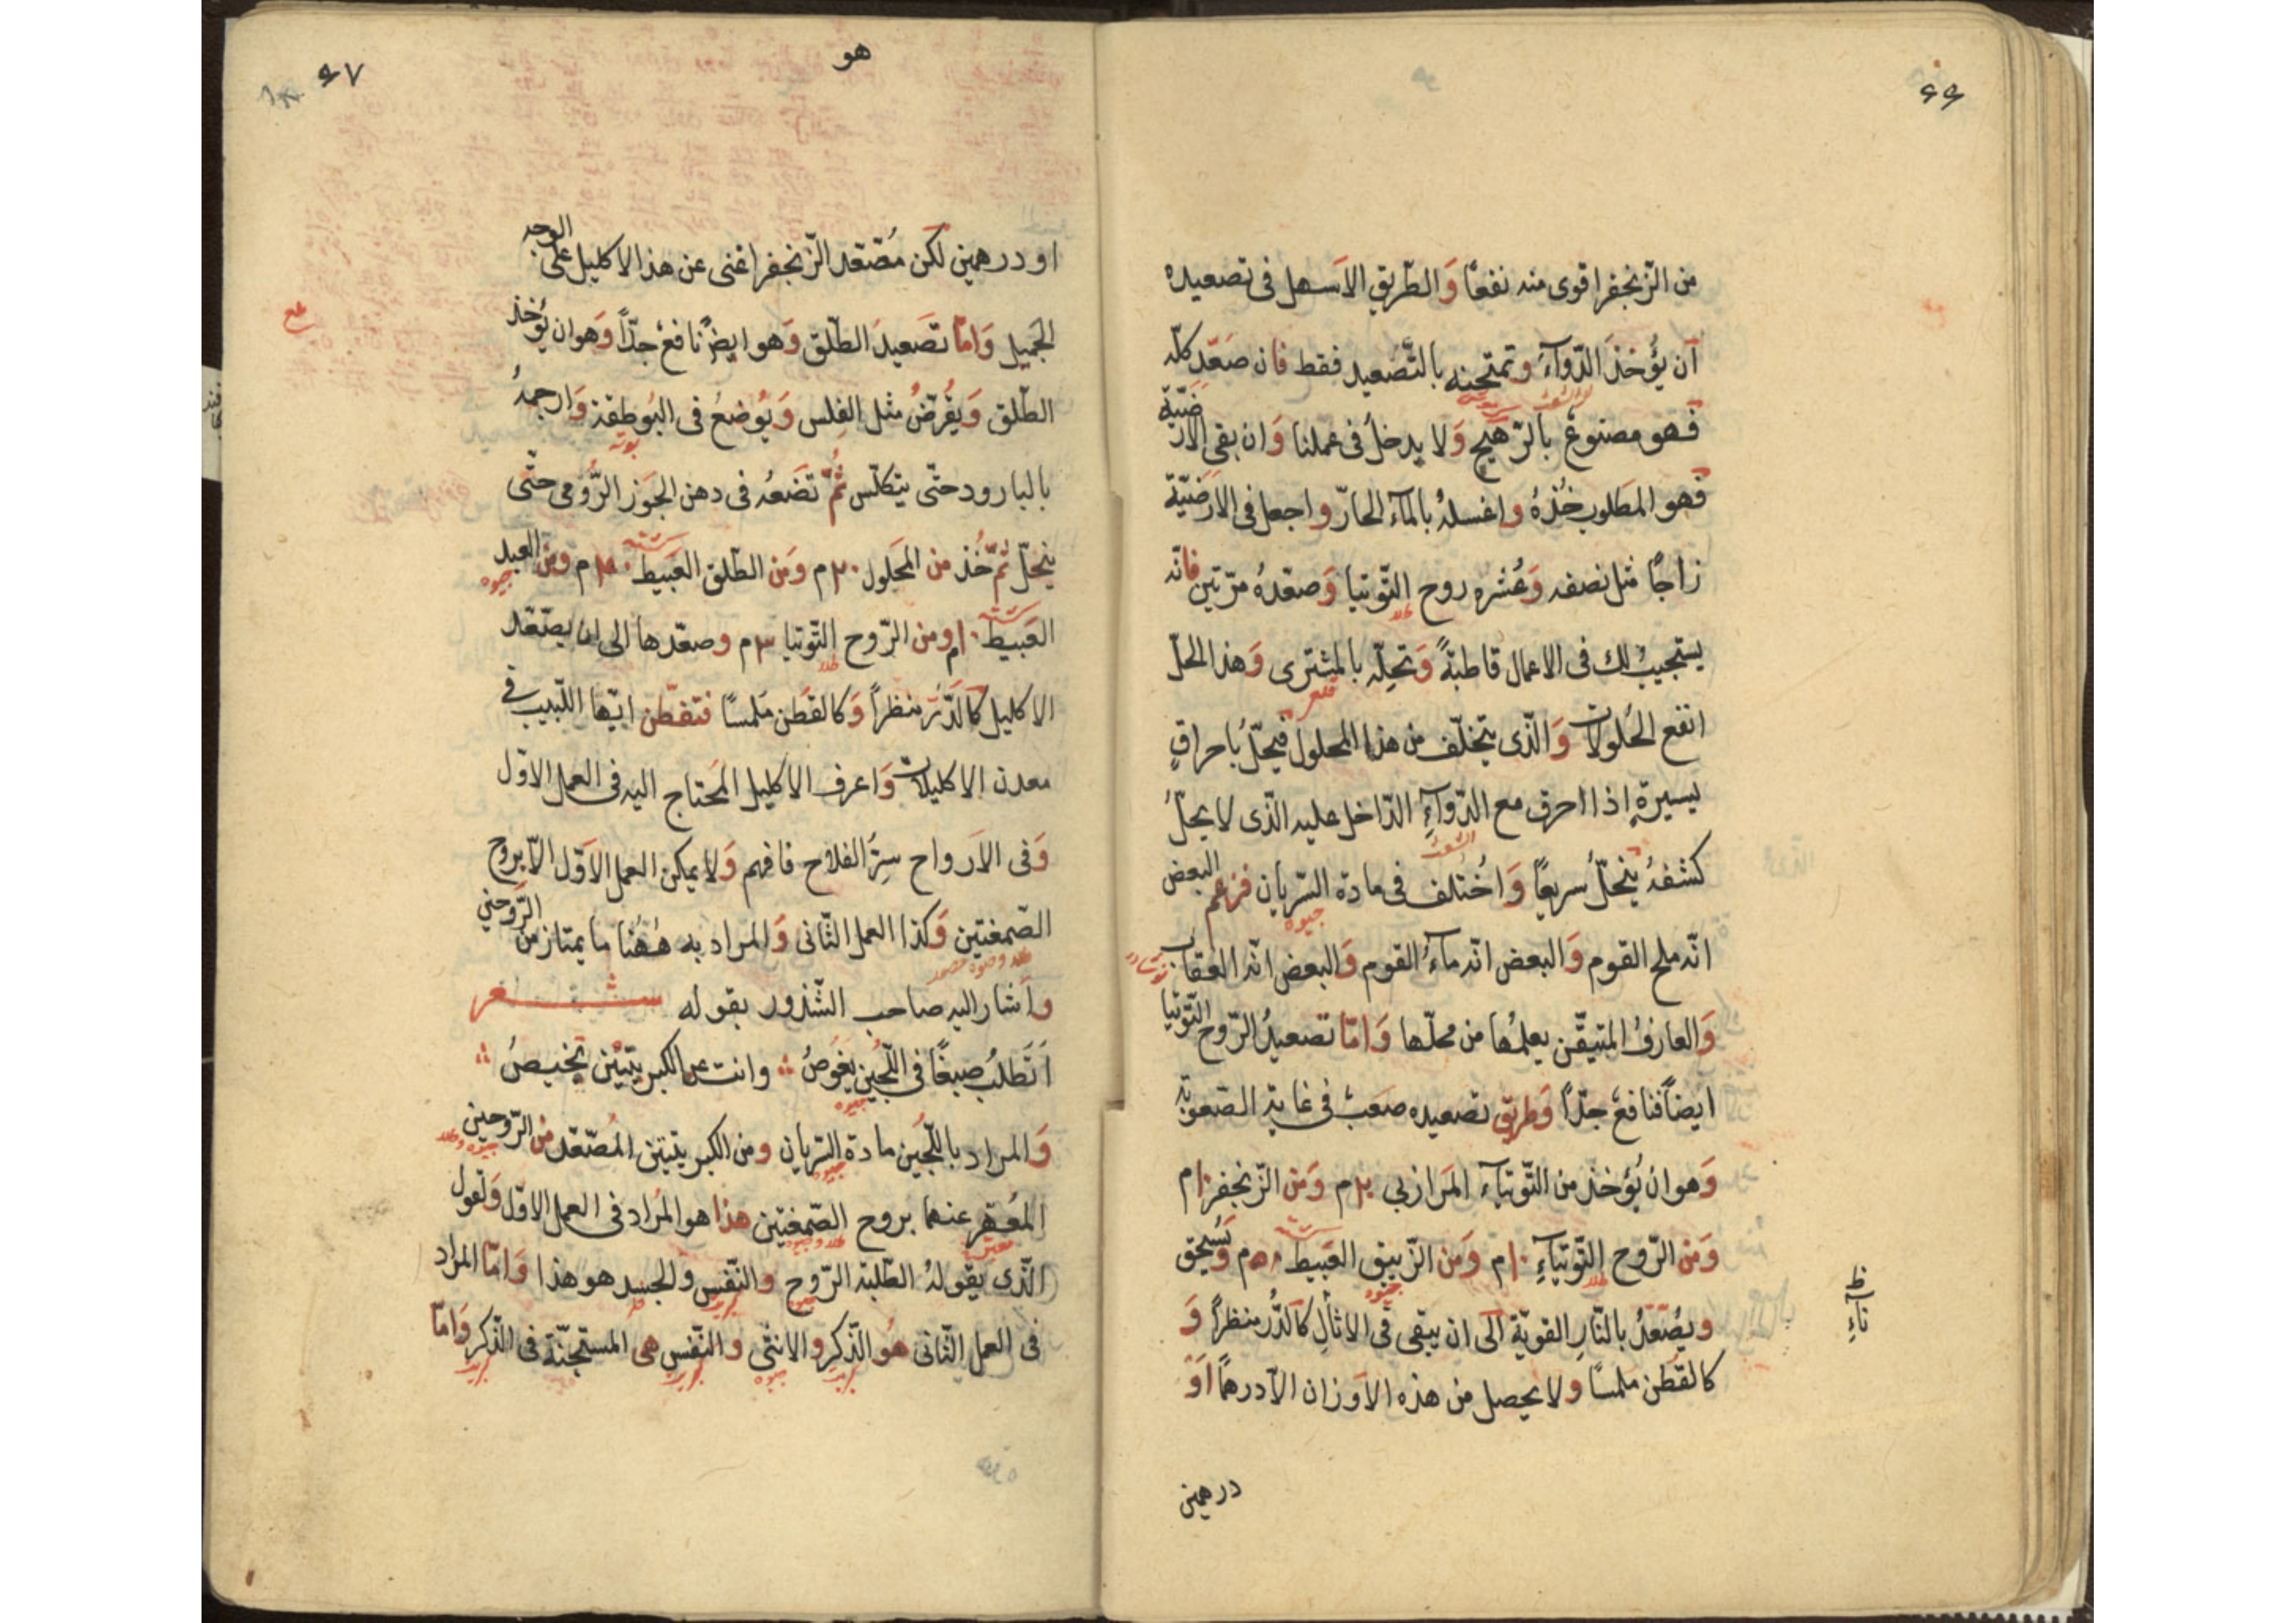 ٤٦
من الزّنجفر اقوى منه نفعًا وَالطّريق الاَسهل فى تصعيده
اَن يُؤخذَ الدّوآءُ وتمتحنه بالتَّصعيد فقط فان صَعّد كلّه
فهو مصنوعٌ بالرّهج وَلا يدخلُ فى عملنا وَان بقى الارضَيّة
فهو المَطلوب خُذهُ واغسلهُ بالمآء الحارّ واجعل فى الارَضيّة
زاجًا مثل نصفه وَعُشره روح التّوتيا وَصعّدهُ مرّتين فانّه
طلا
يستجيبُ لك فى الاعمال قاطبةً وَتحلّه بالمشترى وَهذا الحلّ
قلع
انفع الحُلولات وَالّذى يتخلّف من هذا المحلول فيحلّ باحراقٍ
يسيرةٍ اذا احرق مع الدّوآءِ الدّاخل عليه الّذى لا يحلّ
كشفهُ ينحلُّ سريعًا وَاختُلف فى مادة السّريان فزعم البعض
جيوه
انّه ملح القوم وَالبعض انّه مآءُ القوم وَالبعض انّه العقاب
نوشادر
وَالعارفُ المتيقّن يعلمُها من محلّها وَامّا تصعيدُ الرّوح التّوتيا
ايضاً فنافعٌ جدّاً وَطريق تصعيده صعَبٌ فى غاية الصّعوبَة
وَهو ان يُؤخذ من التّوتيآء المَرازبى ٢٠م وَمن الزّنجفر ١٠م
وَمن الرّوح التّوتيآءِ ١٠م وَمن الزّيبق العَبيط ٥٠م وَيُسحق
طلا جيوه
ويُصَعّدُ بالنّارِ القويّة الَى ان يبقى فى الاثال كالدُّر منظراً وَ
كالقُطن ملمسًا ولا يحصل من هذه الاَوزان الاّ درهمًا اَوْ
درهمين
ظ
نآءِ
هو
٤٧
او درهمين لكن مُصَّعّد الزّنجفر اغنى عن هذا الاكليل على الوجه
الجَميل وَامّا تصَعيدَ الطّلق وَهو ايضًا نافعٌ جدّاً وَهو ان يُؤخذ
الطّلق وَيقُرّضُ مثل الفِلس وَيُوضعُ فى البُوطقة وَارجمهُ
بوته
بالبارود حتّى يتكلّس ثُمّ تَضَعُه فى دهن الجَوز الرّومى حتّى
ينحلّ ثمّ خُذ من المحَلول ٢٠م وَمن الطّلق العَبيط م وَمن العبد
جيوه
العَبيط ١٠م ومن الرّوح التّوتيا ٣م وصعّدها الى ان يصّعّد
طلا
الاكليل كالدّرّ منظراً وَكالقطن مَلمسًا فتفطّن ايّها اللّبيب فى
معدن الاكليلات وَاعرف الاكليل المحَتاج اليه فى العمل الاوّل
وَفى الاَرواح سِرّ الفلاح فافهم وَلا يمكن العمل الاَوّل الاّ بروح
الصّمغتين وَكذا العمل الثّانى وَالمراد به هٰهُنا ما يمتاز من الرّوحين
واَشار اليه صاحب الشّذور بقوله شعر
اَتَطلُبُ صبغًا فى اللّجُين يَغوُصُ وانت عن الكبريتَيْن تحيصُ
جيوه
وَالمراد باللّجُين مادة السّريان ومن الكبريتيتن المُصّعّد من الرّوحين
جيوه جيوه وطلا
المُعبّر عنهما بروح الصّمغتين هذا هو المُراد فى العمل الاوّل وَتقول
الّذى يَقولهُ الطّلبة الرّوح والنّفس والجسد هو هذا وَامّا المراد
فى العمل الثّانى هُو الذّكر والانثى والنّفس هى المستجنّة فى الذّكر وَامّا
جيوه